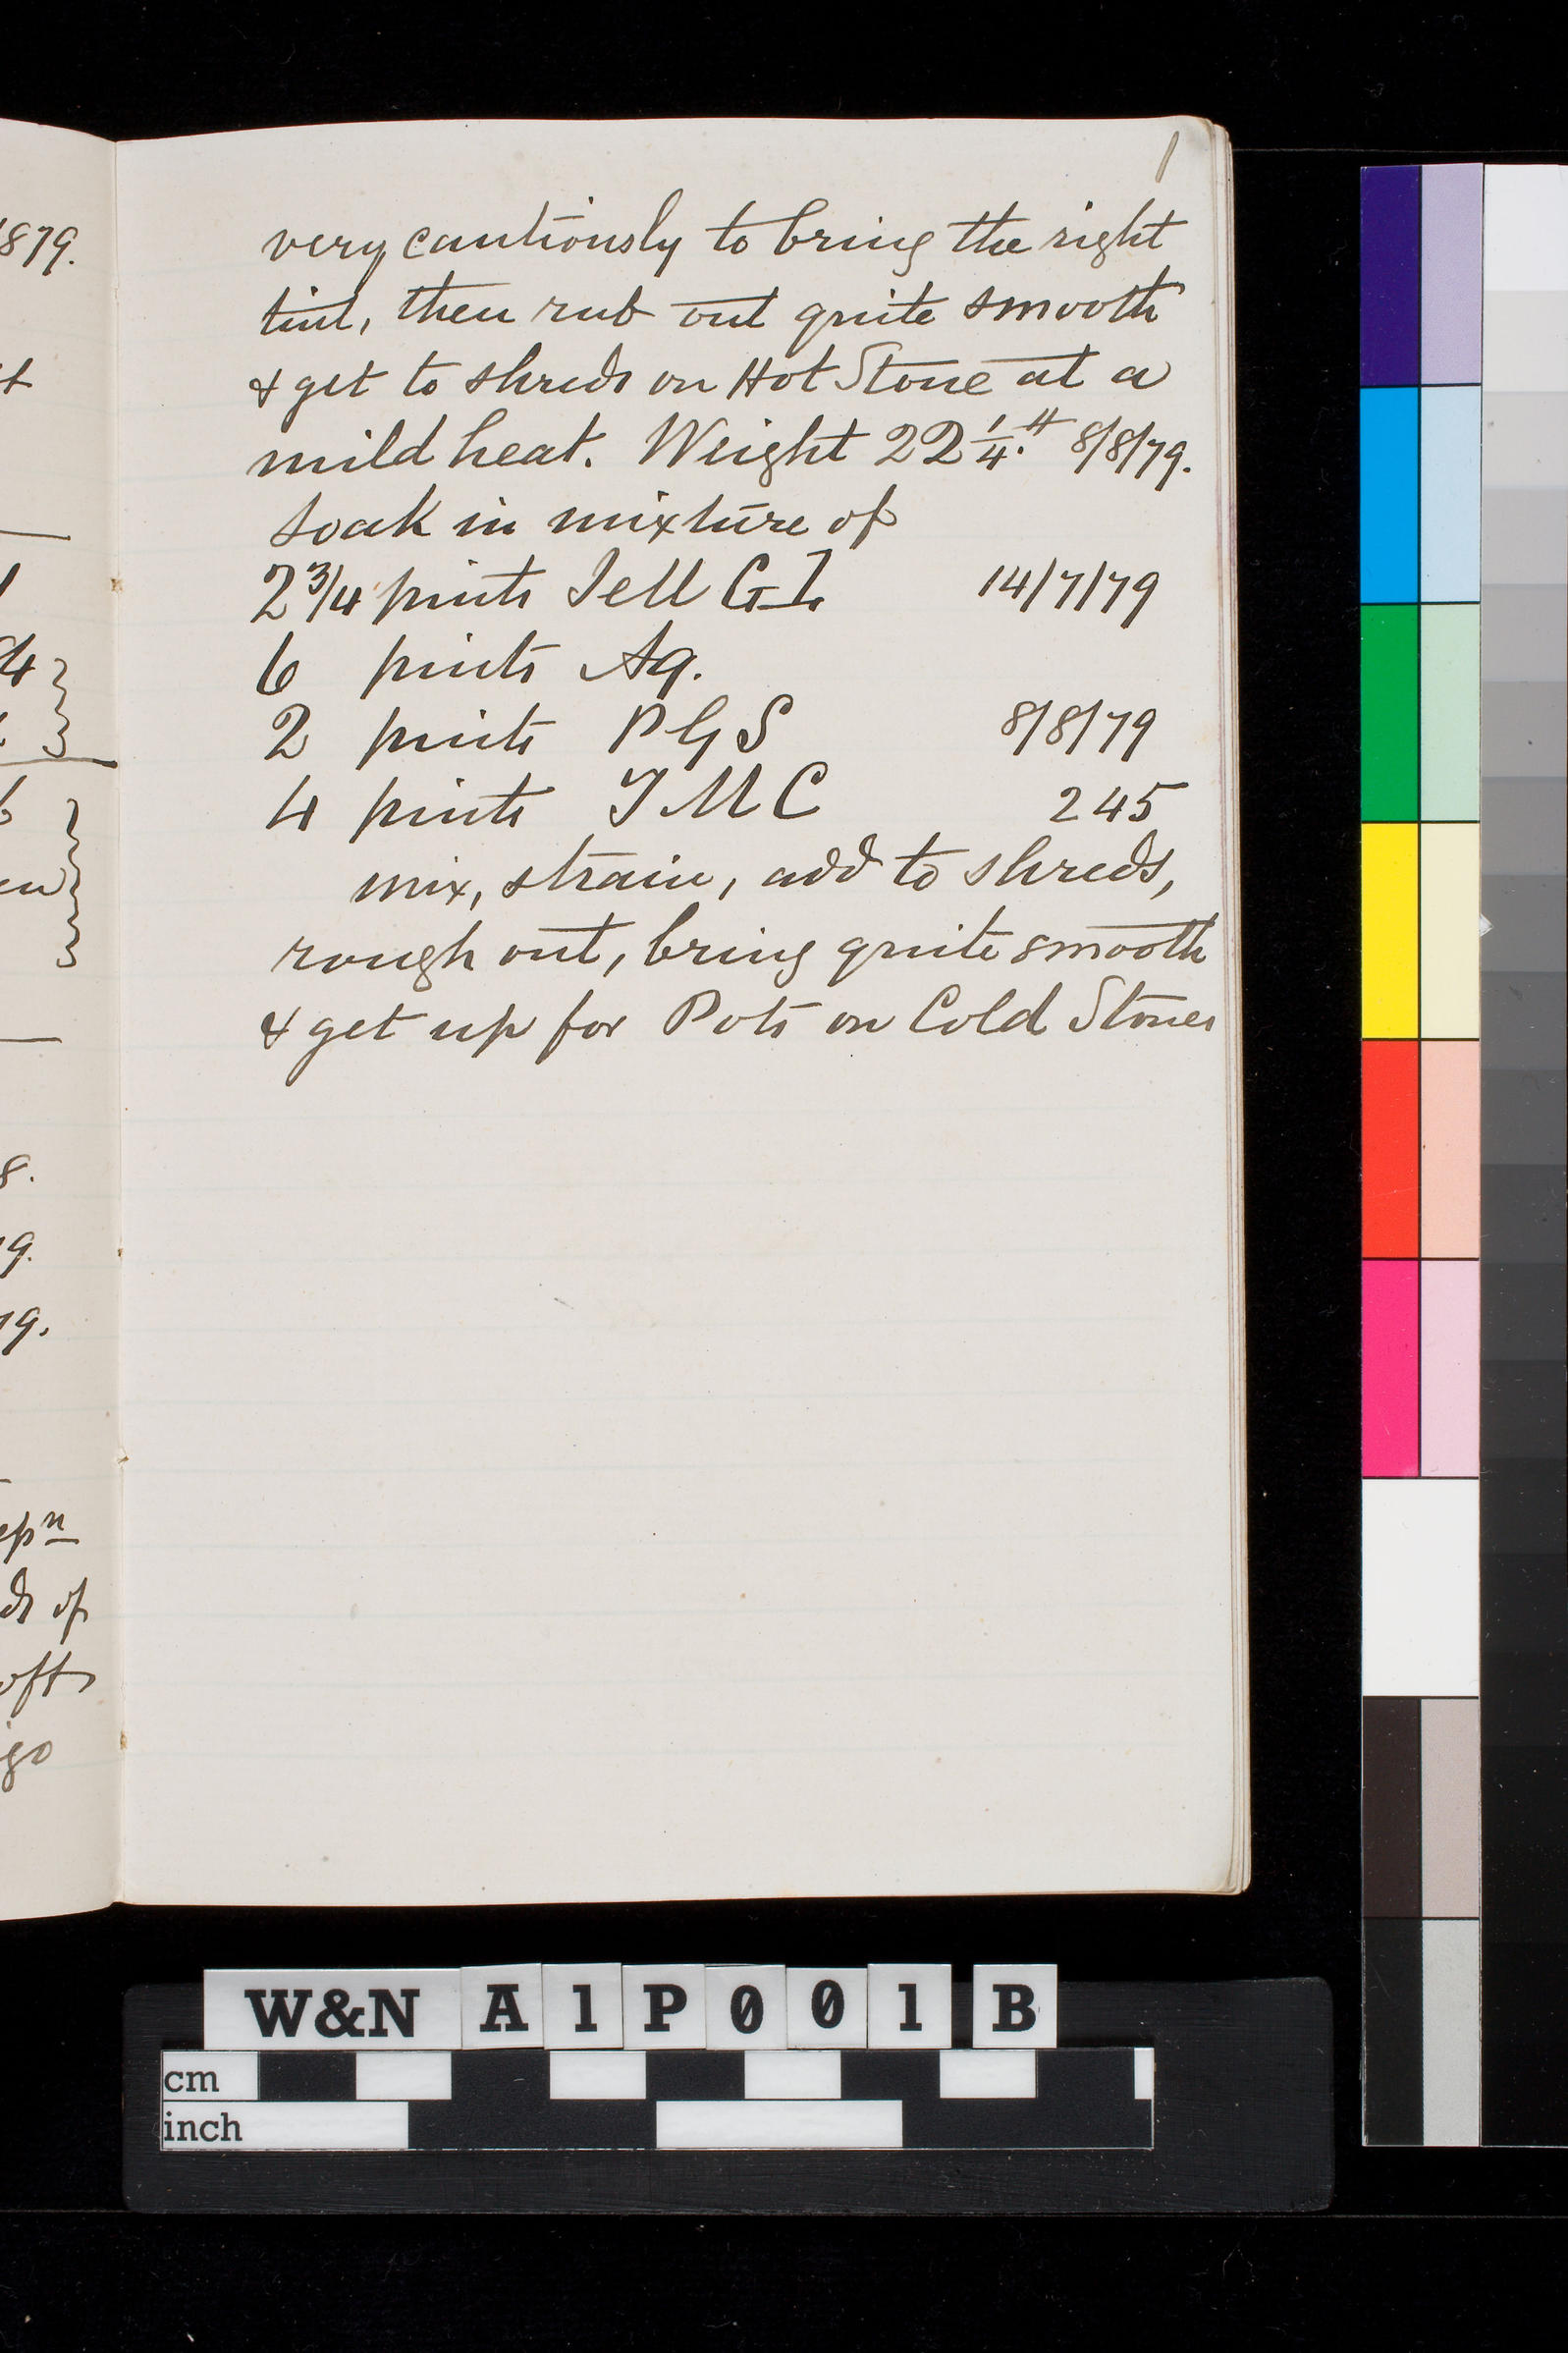 1
very cautiously to bring the right
tint, then rub out quite smooth
& get to shreds on Hot Stone at a
mild heat. Weight 22 1/4.# 8/8/79.
Soak in mixture of
2 3/4 pints Jell G I 14/7/79
6 pints Aq.
2 pints P G S 8/8/79
4 pints J M C 245
mix, strain, add to shreds,
rough out, bring quite smooth
& get up for Pots on Cold Stones
1879.
epn
ds of
oft
go
8.
9.
79.
W&N A1P001 B
cm
inch